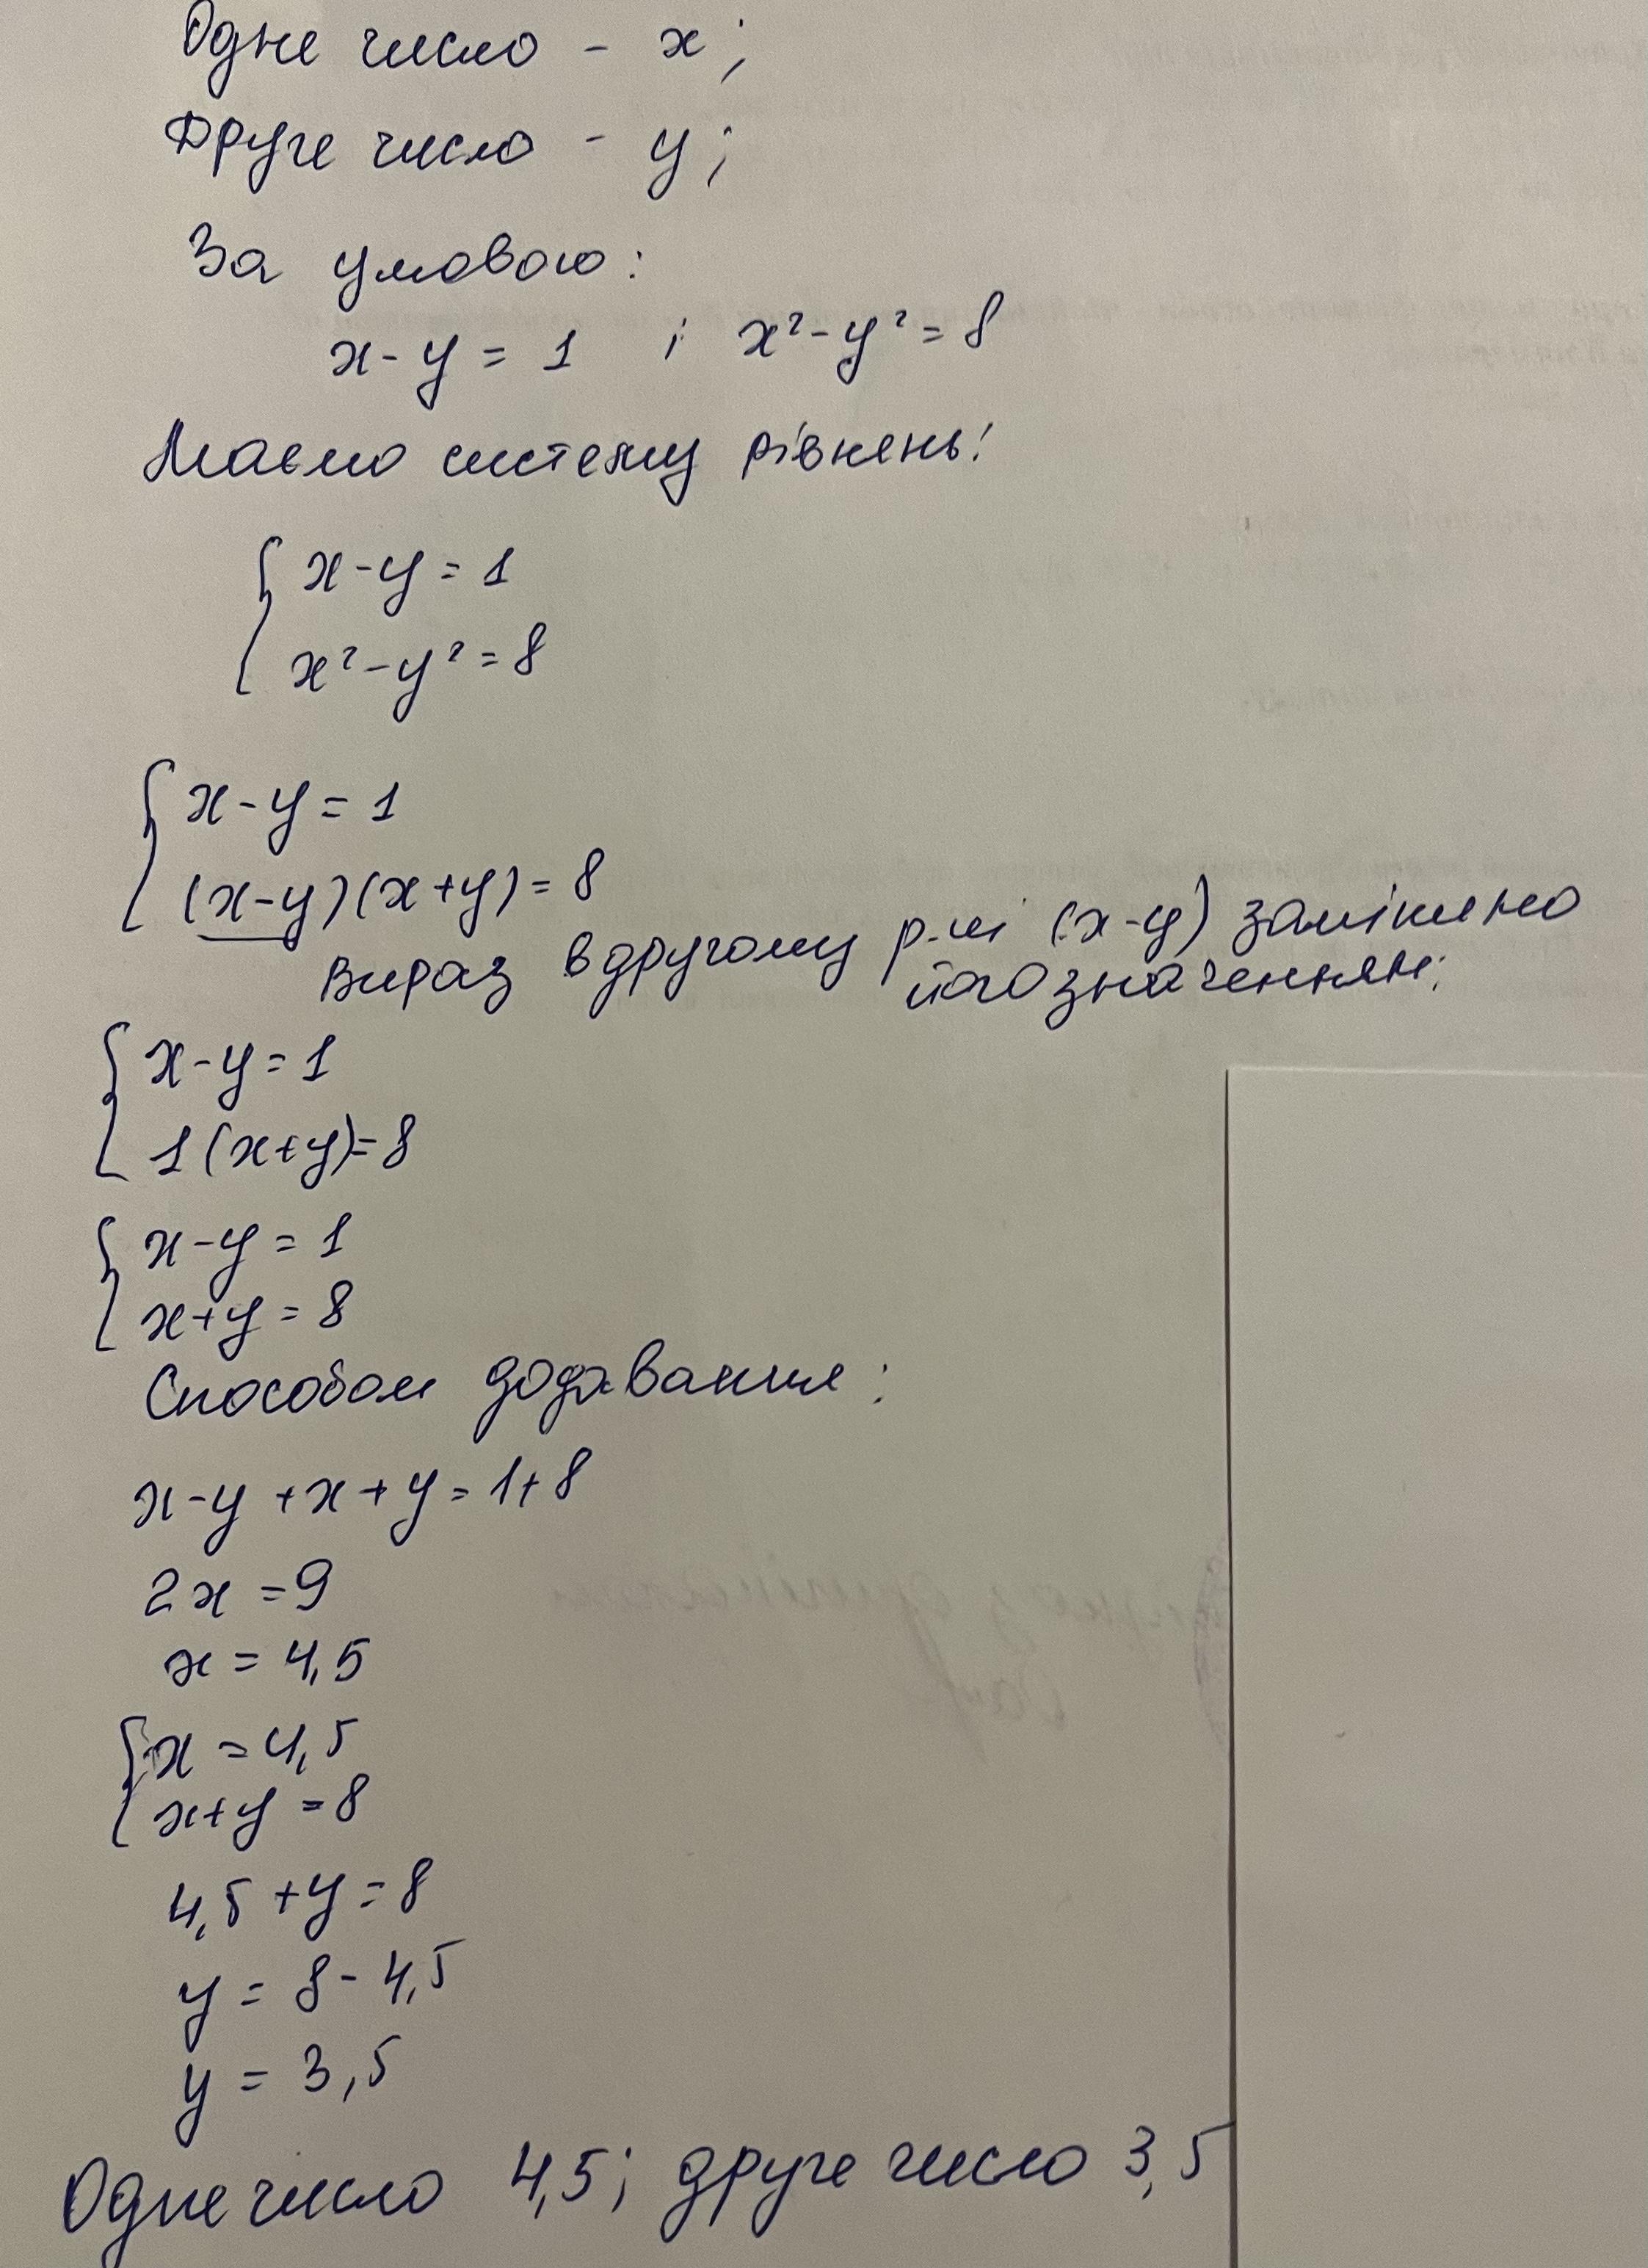 Одне число - x;
Друге число - y;
За умовою:
x - y = 1 і x² - y² = 8
Маємо систему рівнень:
x - y = 1
x² - y² = 8
x - y = 1
(x-y)(x+y) = 8
Вираз в другому р-ні (x-y) замінимо
його значенням:
x - y = 1
1(x+y) = 8
x - y = 1
x + y = 8
Способом додавання:
x - y + x + y = 1 + 8
2x = 9
x = 4,5
x = 4,5
x + y = 8
4,5 + y = 8
y = 8 - 4,5
y = 3,5
Одне число 4,5; друге число 3,5